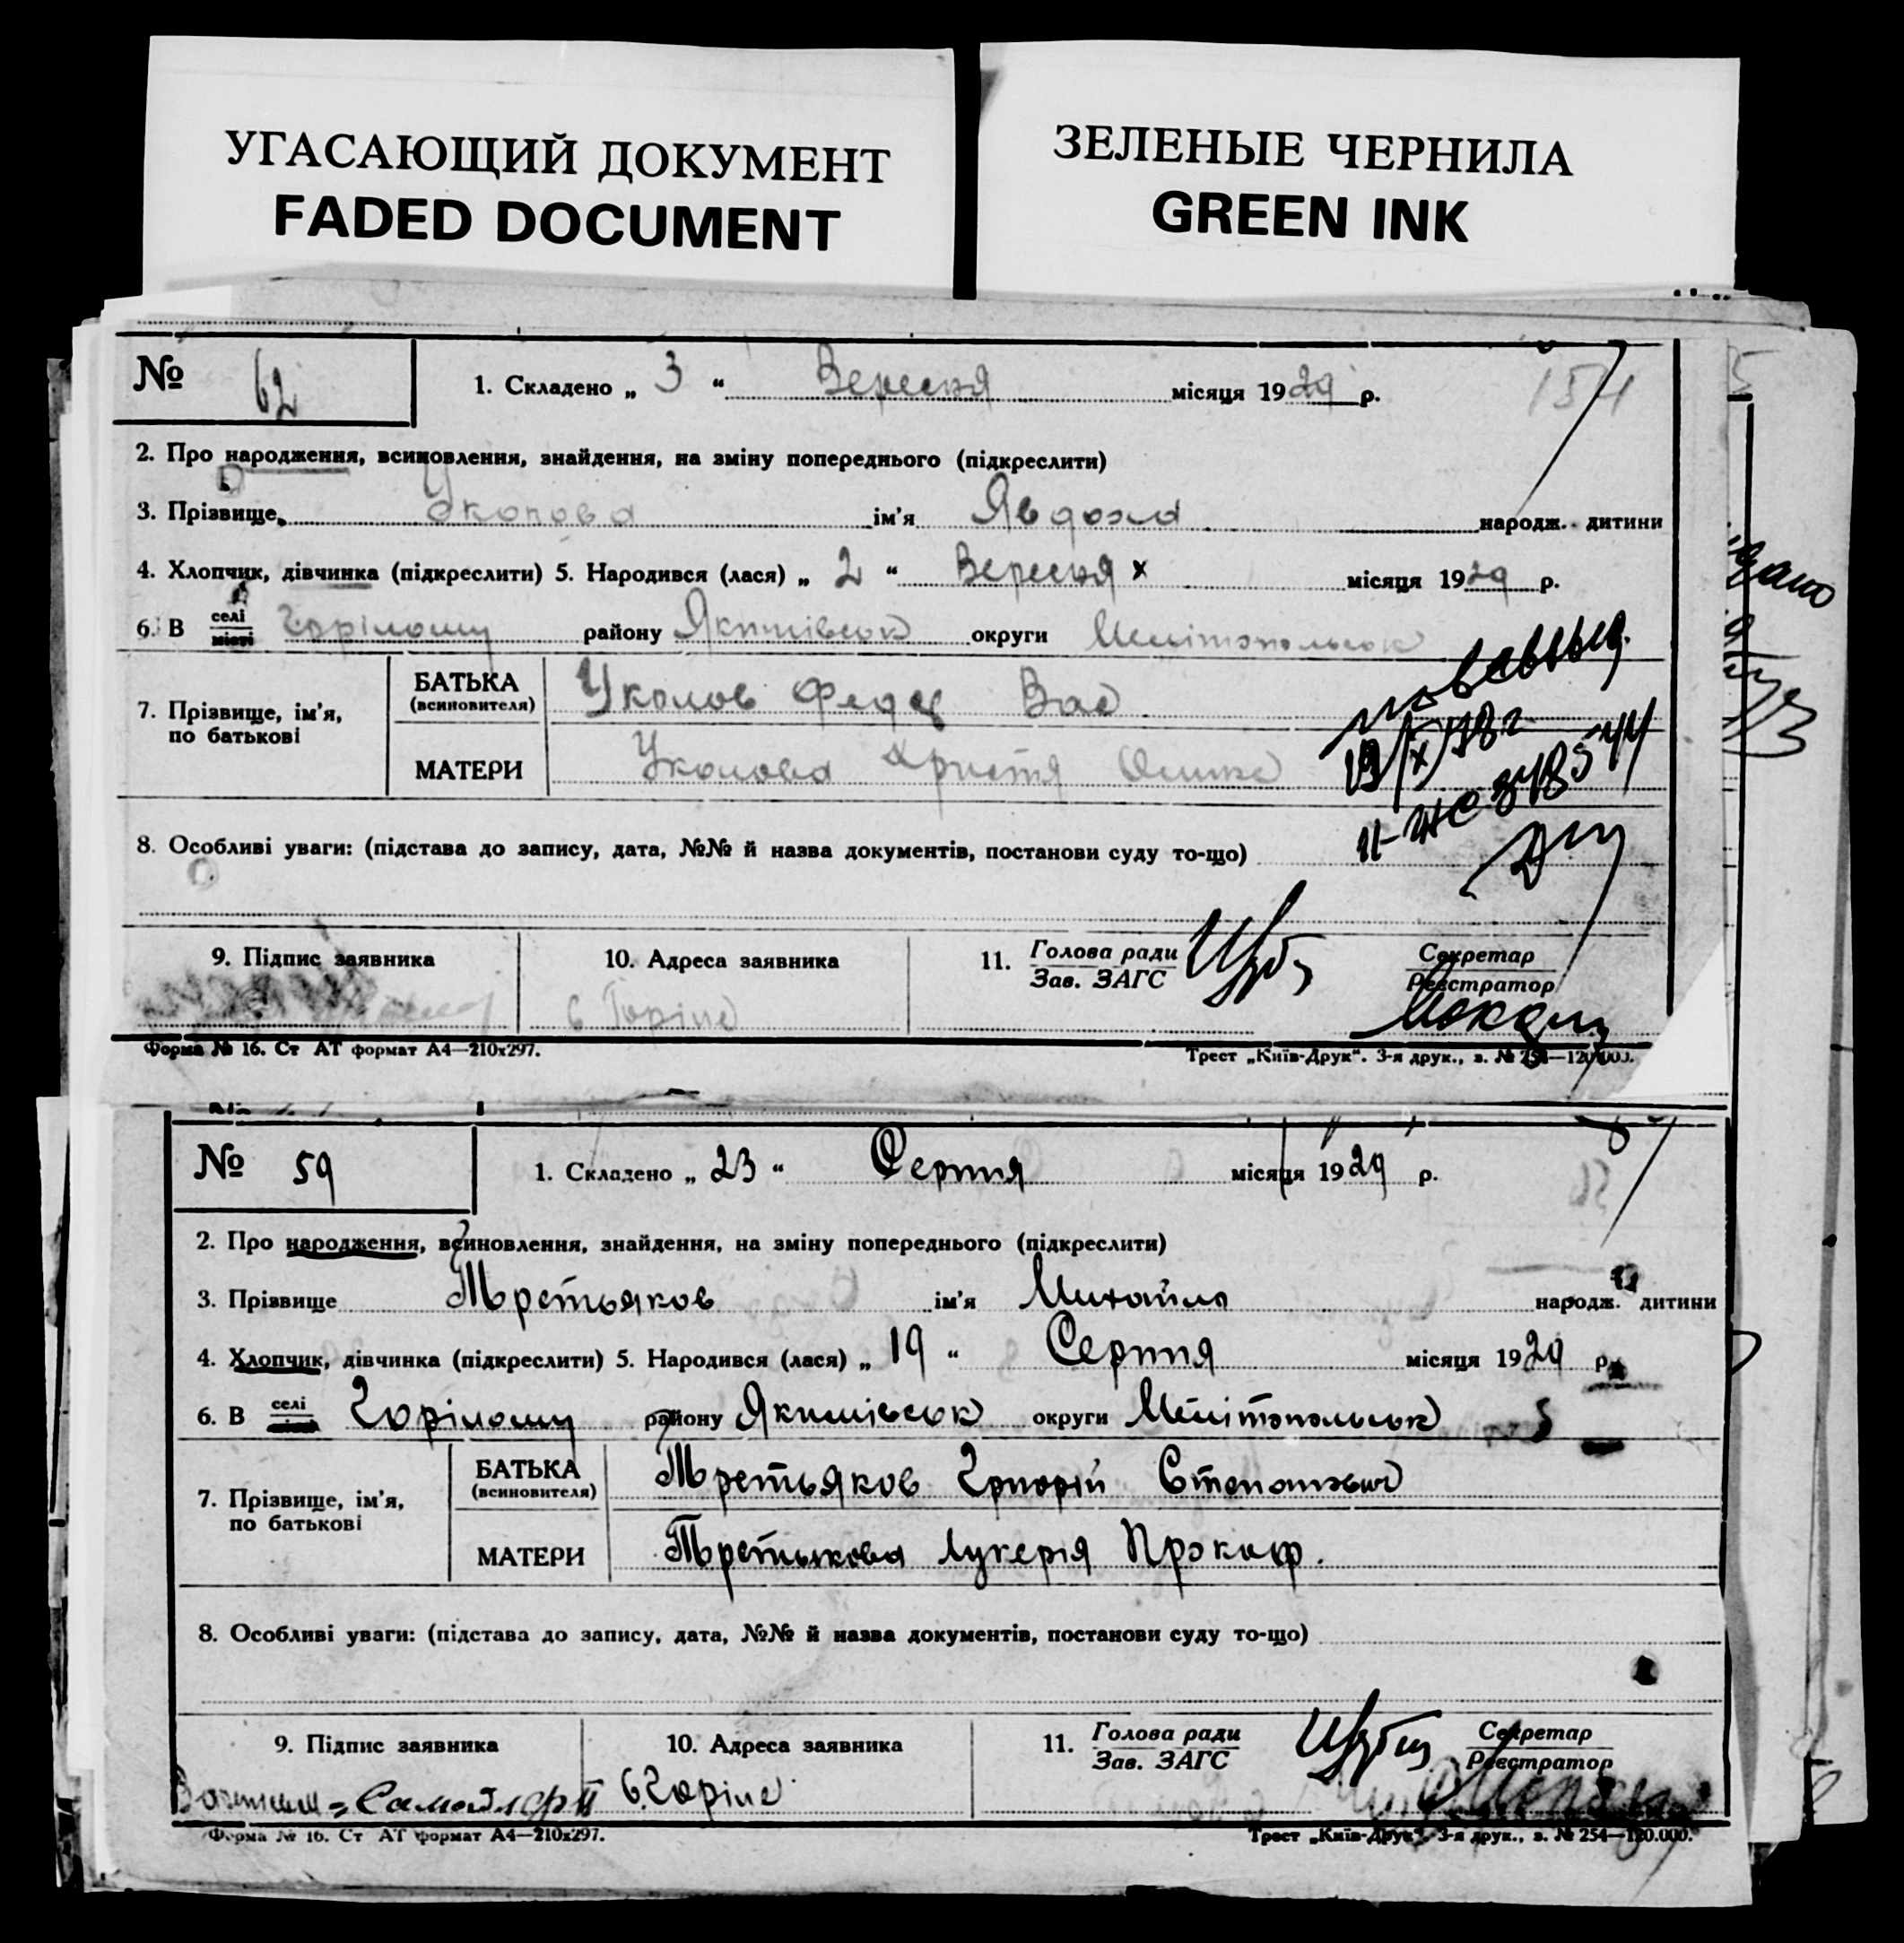 УГАСАЮЩИЙ ДОКУМЕНТ
FADED DOCUMENT
ЗЕЛЕНЫЕ ЧЕРНИЛА
GREEN INK
№ 62
1. Складено „ 3 “ Вересня місяця 1929 р.
2. Про народження, всиновлення, знайдення, на зміну попереднього (підкреслити)
3. Прізвище ім'я народж. дитини
4. Хлопчик, дівчинка (підкреслити) 5. Народився (лася) „ 2 “ Вересня х місяця 1929 р.
6. В селі місті Горілому району Якимівськ округи Мелітопольськ
7. Прізвище, ім'я, по батькові
БАТЬКА (всиновителя) Уколов Вас
МАТЕРИ Уколова Христя
8. Особливі уваги: (підстава до запису, дата, №№ й назва документів, постанови суду то-що)
9. Підпис заявника
10. Адреса заявника
с Горіле
11. Голова ради Зав. ЗАГС
Секретар Реєстратор
Форма № 16. Ст АТ формат А4—210х297.
Трест „Київ-Друк“. 3-я друк., з. № 254—120.000.
№ 59
1. Складено „ 23 “ Серпня місяця 1929 р.
2. Про народження, всиновлення, знайдення, на зміну попереднього (підкреслити)
3. Прізвище Третьяков ім'я Михайло народж. дитини
4. Хлопчик, дівчинка (підкреслити) 5. Народився (лася) „ 19 “ Серпня місяця 1929 р.
6. В селі Горілому району Якимівськ округи Мелітопольськ
7. Прізвище, ім'я, по батькові
БАТЬКА (всиновителя) Третьяков Григорій Степанович
МАТЕРИ Третьякова Лукерія Прокоф.
8. Особливі уваги: (підстава до запису, дата, №№ й назва документів, постанови суду то-що)
9. Підпис заявника
10. Адреса заявника
с. Горіле
11. Голова ради Зав. ЗАГС
Секретар Реєстратор
Форма № 16. Ст АТ формат А4—210х297.
Трест „Київ-Друк“. 3-я друк., з. № 254—120.000.